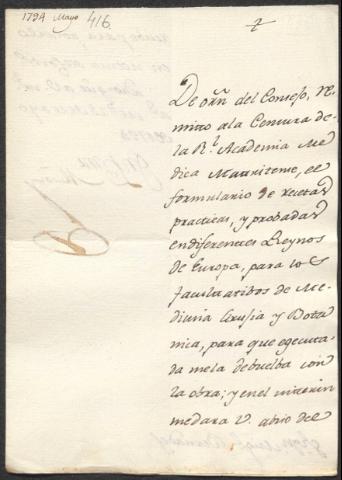 1794 Mayo 416.
De orñ del Consejo, re-
mito a la Censura de
la Rl. Academia Me
dica Matritense, el
formulario de recetas
practicas, y probadas
en diferentes Reynos
de Europa, para los
facultatibos de Me-
dicina Cirugia y Bota
nica, para que egecuta-
da me la debuelba con
la obra; y en el interin
me dara V. abiso del